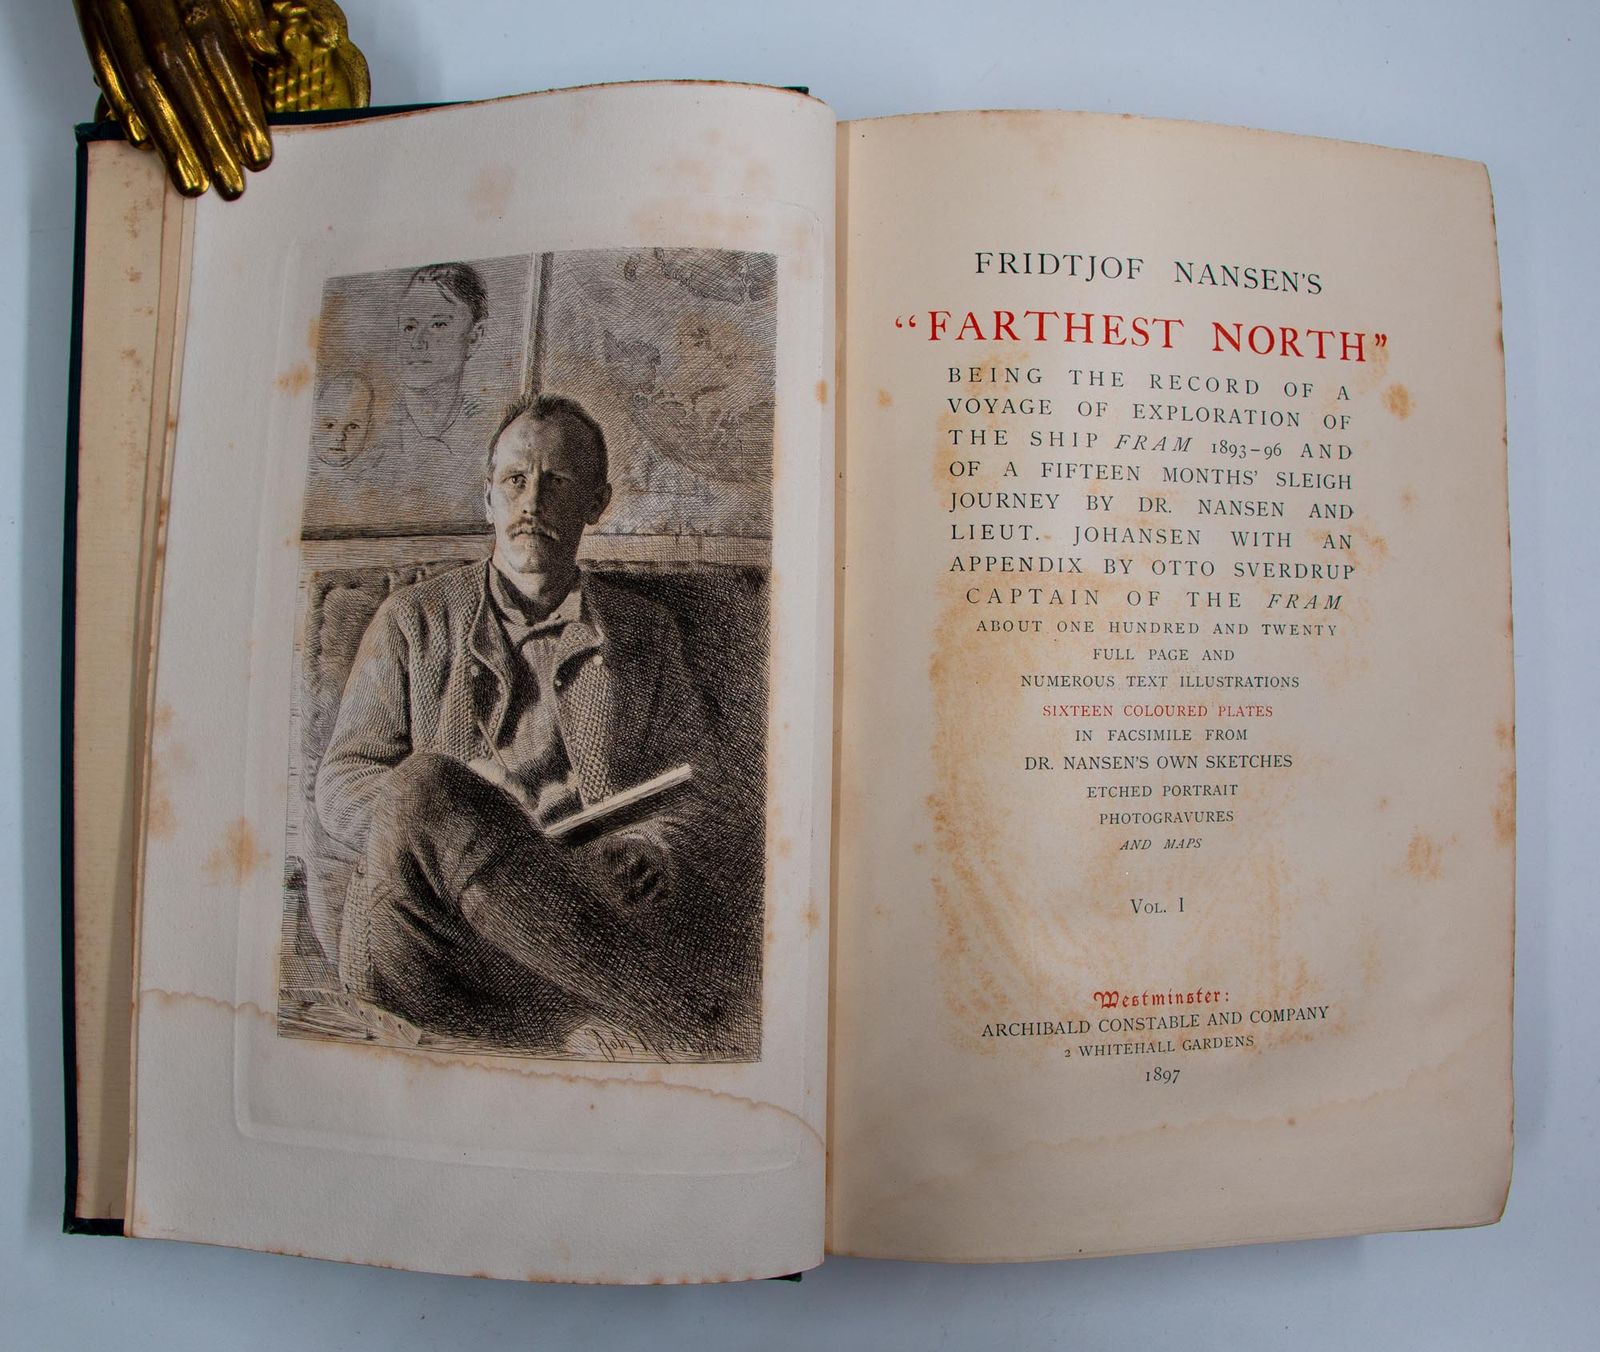 FRIDTJOF NANSEN'S
“FARTHEST NORTH”
BEING THE RECORD OF A
VOYAGE OF EXPLORATION OF
THE SHIP FRAM 1893-96 AND
OF A FIFTEEN MONTHS' SLEIGH
JOURNEY BY DR. NANSEN AND
LIEUT. JOHANSEN WITH AN
APPENDIX BY OTTO SVERDRUP
CAPTAIN OF THE FRAM
ABOUT ONE HUNDRED AND TWENTY
FULL PAGE AND
NUMEROUS TEXT ILLUSTRATIONS
SIXTEEN COLOURED PLATES
IN FACSIMILE FROM
DR. NANSEN'S OWN SKETCHES
ETCHED PORTRAIT
PHOTOGRAVURES
AND MAPS
VOL. I
Westminster:
ARCHIBALD CONSTABLE AND COMPANY
2 WHITEHALL GARDENS
1897